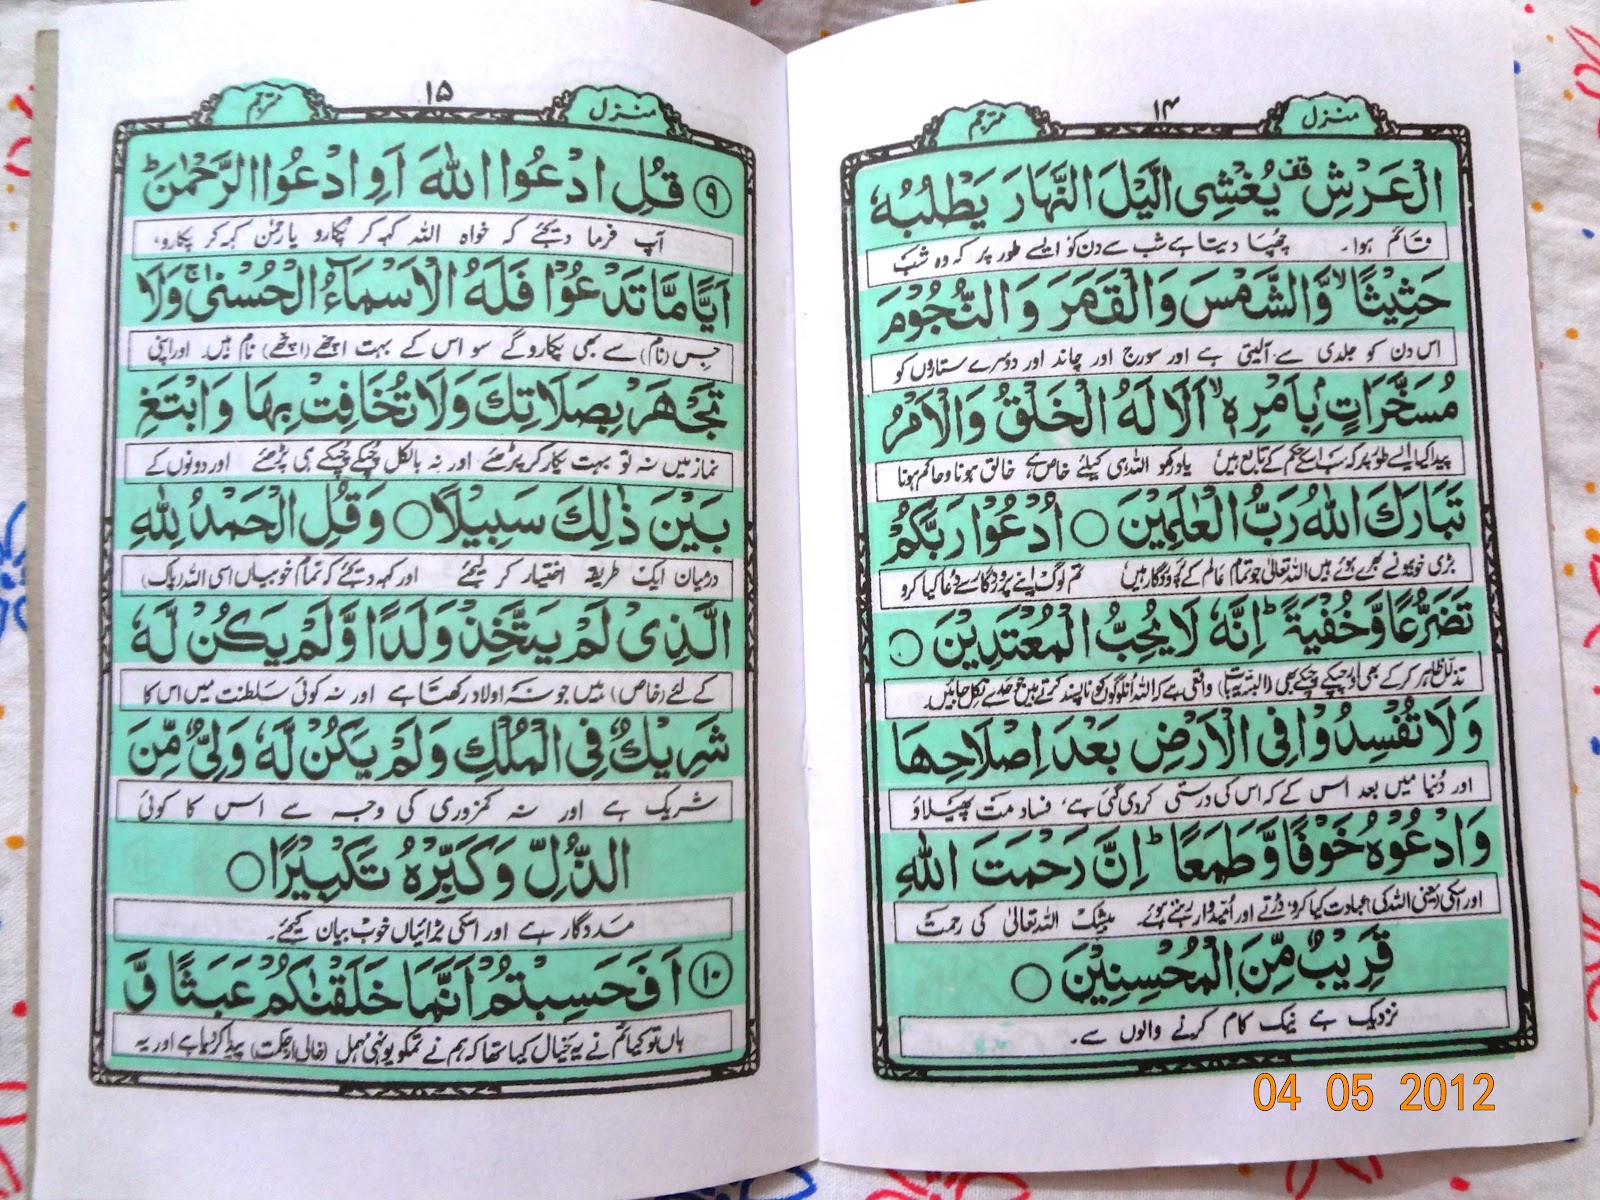 منزل ۱۴ مترجم
الْعَرْشِ قف يُغْشِى الَّيْلَ النَّهَارَ يَطْلُبُهٗ
قائم ہوا۔ چھپا دیتا ہے شب سے دن کو ایسے طور پر کہ وہ شب
حَثِيْثًا ۙ وَّالشَّمْسَ وَالْقَمَرَ وَالنُّجُوْمَ
اس دن کو جلدی سے آلیتی ہے اور سورج اور چاند اور دوسرے ستاروں کو
مُسَخَّرَاتٍۭ بِاَمْرِهٖ ؕ اَلَا لَهُ الْخَلْقُ وَالْاَمْرُ
پیدا کیا ایسے طور پر کہ سب اسکے حکم کے تابع ہیں یاد رکھو اللہ ہی کیلئے خاص ہے خالق ہونا و حاکم ہونا
تَبَارَكَ اللّٰهُ رَبُّ الْعٰلَمِيْنَ ○ اُدْعُوْا رَبَّكُمْ
بڑی خوبیوں کے بھرے ہوئے ہیں اللہ تعالیٰ جو تمام عالم کے پروردگار ہیں تم لوگ اپنے پروردگار سے دعا کیا کرو
تَضَرُّعًا وَّخُفْيَةً ؕ اِنَّهٗ لَا يُحِبُّ الْمُعْتَدِيْنَ ○
تذلل ظاہر کر کے بھی اور چپکے چپکے بھی (البتہ یہ بات) واقعی ہے کہ اللہ ان لوگوں کو ناپسند کرتے ہیں جو حد سے نکل جائیں۔
وَلَا تُفْسِدُوْا فِى الْاَرْضِ بَعْدَ اِصْلَاحِهَا
اور دُنیا میں بعد اس کے کہ اس کی درستی کردی گئی ہے، فساد مت پھیلاؤ
وَادْعُوْهُ خَوْفًا وَّطَمَعًا ؕ اِنَّ رَحْمَتَ اللّٰهِ
اور اسکی (یعنی اللہ کی) عبادت کیا کرو ڈرتے اور اُمیدوار رہتے ہوئے۔ بیشک اللہ تعالیٰ کی رحمت
قَرِيْبٌ مِّنَ الْمُحْسِنِيْنَ ○
نزدیک ہے نیک کام کرنے والوں سے۔
منزل ۱۵ مترجم
۹ قُلِ ادْعُوا اللّٰهَ اَوِ ادْعُوا الرَّحْمٰنَ ؕ
آپ فرما دیجئے کہ خواہ اللہ کہہ کر پکارو یا رحمٰن کہہ کر پکارو،
اَيًّا مَّا تَدْعُوْا فَلَهُ الْاَسْمَآءُ الْحُسْنٰى ۚ وَلَا
جس (نام) سے بھی پکارو گے سو اس کے بہت اچھے (اچھے) نام ہیں۔ اور اپنی
تَجْهَرْ بِصَلَاتِكَ وَلَا تُخَافِتْ بِهَا وَابْتَغِ
نماز میں نہ تو بہت پکار کر پڑھئے اور نہ بالکل چپکے چپکے ہی پڑھئے اور دونوں کے
بَيْنَ ذٰلِكَ سَبِيْلًا ○ وَقُلِ الْحَمْدُ لِلّٰهِ
درمیان ایک طریقہ اختیار کر لیجئے اور کہہ دیجئے کہ تمام خوبیاں اسی اللہ (پاک)
الَّذِىْ لَمْ يَتَّخِذْ وَلَدًا وَّلَمْ يَكُنْ لَّهٗ
کے لئے (خاص) ہیں جو نہ اولاد رکھتا ہے اور نہ کوئی سلطنت میں اس کا
شَرِيْكٌ فِى الْمُلْكِ وَلَمْ يَكُنْ لَّهٗ وَلِىٌّ مِّنَ
شریک ہے اور نہ کمزوری کی وجہ سے اس کا کوئی
الذُّلِّ وَكَبِّرْهُ تَكْبِيْرًا ○
مددگار ہے اور اسکی بڑائیاں خوب بیان کیجئے۔
۱۰ اَفَحَسِبْتُمْ اَنَّمَا خَلَقْنٰكُمْ عَبَثًا وَّ
ہاں تو کیا تم نے یہ خیال کیا تھا کہ ہم نے تمکو یونہی مہمل (خالی از حکمت) پیدا کر دیا ہے اور یہ
04 05 2012